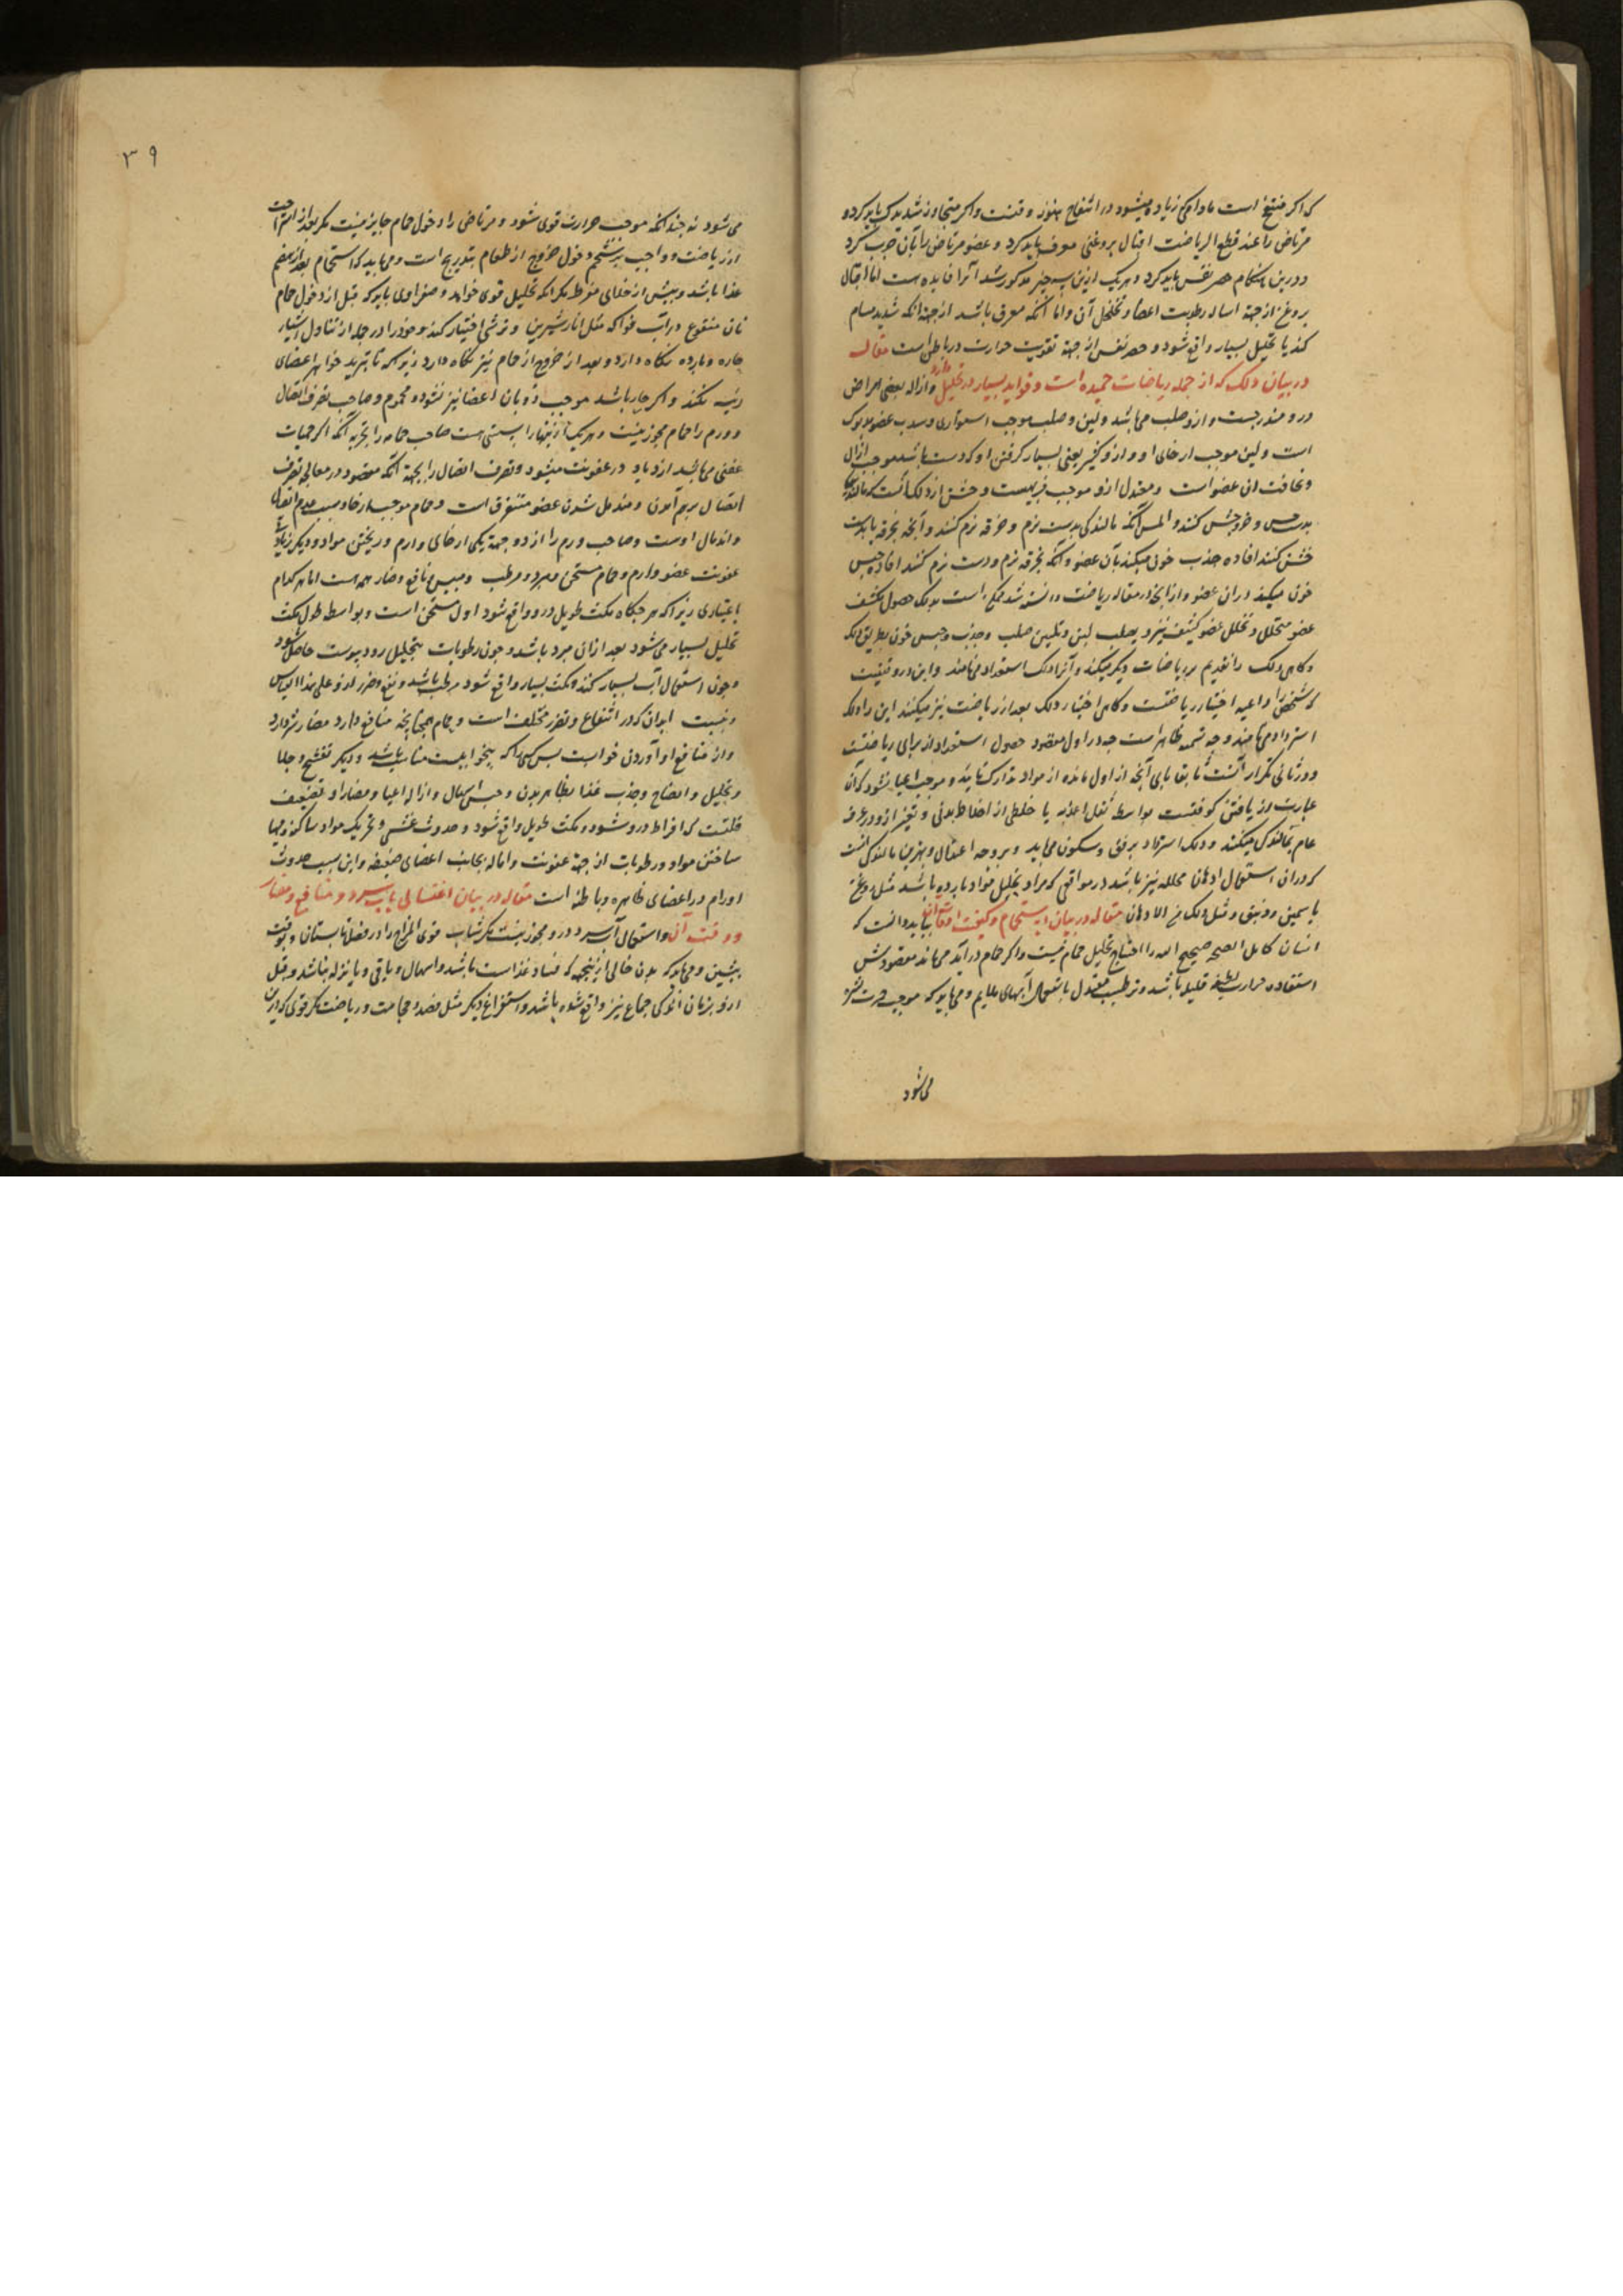 که اکر منتفخ است مادام که زیاده میشود در انتفاخ هنوز وقتست واکر متجاوز شد ترک باید کرد و
مرتاض را عند قطع الریاضت اقبال بروغنی معرق باید کرد و عضو مرتاض را بآن چرب کرد
ودرین هنکام حصر نفس باید کرد و هریک ازین سه چیز مذکور شد آنرا فایده هست اما
بروغن از جهة اساله رطوبت اعضا و تخلخل آن واما آنکه معرق باشد از جهة انکه شدید مسام
کند یا تحلیل بسیار واقع شود و حصر نفس از جهة تقویت حرارت در باطن است مقاله
در بیان دلک که از جمله ریاضات حمیده است و فواید بسیار در تحلیل دارد وازاله بعضی امراض
درو مندرجست وازو صلب می باشد ولین وصلب موجب استواری و عضو مدلوک
است ولین موجب ارخای او وازو کثیر یعنی بسیار کرفتن او که دست باشد موجب ازال
و نحافت ان عضو است و معتدل ازو موجب فربهیست و خشن از دلک آنست که مالند
بدست خشن کنند و املس آنکه مالندکی بدست نرم و خرقه نرم کنند وآنچه بخرقه یا بدست
خشن کنند افاده جذب خون میکند بآن عضو وآنکه بخرقه نرم ودست نرم کنند افاده حبس
خون میکند دران عضو وازآنچه در مقاله ریاضت دانسته شد است بدلک حصول تکثف
عضو متخلخل و تخلخل عضو کثیف نیز و تصلب لین و تلیین صلب وجذب وحبس خون بطریق انکه
وکاهی دلک را تقدیم بر ریاضات دیکر میکند وآنرا دلک استعداد می نامند واین در وقتیست
که شخص را داعیه اختیار ریاضتست وکاهی اختیار دلک بعد از ریاضت نیز میکنند این را دلک
استرداد می نامند وجه تسمیه ظاهر است چه در اول مقصود حصول استعداد از برای ریاضتست
ودر ثانی تکرار آنست تا بقایای آنچه از اول مانده از مواد تدارک نماید و موجب اعیا نشود که آن
عبارت از یافتن کوفتست بواسطه ثقل اغذیه یا خلطی از اخلاط بدنی و تغیر ازو در عرف
عام بماندکی میکنند و دلک استرداد برفق وسکون می باید و بر وجه اعتدال و بهترین مالندکی آنست
که دران استعمال ادهان محلله نیز باشد در مواقعی که مراد تحلیل مواد بارده باشد مثل روغن
یاسمین و زنبق و مثل دلک من الادهان مقاله در بیان استحمام وکیفیت اوقات آن بباید دانست که
انسان کامل الصحه صحیح البدن را احتیاج تحلیل حمام نیست واکر حمام درآید می باید مقصودش
استفاده حرارت لطیفه قلیله باشد و ترطیب معتدل باستعمال آبهای ملایم و می باید که موجب
می شود
۳۹
می شود نه چندانکه موجب حرارت قوی شود و مرتاض را دخول حمام جایز نیست مکر بعد از استراحت
از ریاضت و واجب بر مستحم دخول خروج از حمام بتدریج است و می باید که استحمام بعد از هضم
غذا باشد و پیش از خلای مفرط مکر انکه تحلیل قوی خواهد و صفراوی باید که قبل از دخول حمام
نان منقوع در آب فواکه مثل انار شیرین و ترشی اختیار کند و خود را در حمام از تناول اشیاء
حاره و بارده نکاه دارد و بعد از خروج از حمام نیز نکاه دارد زیراکه تا تبرید خواهر اعضای
رئیسه نکند واکر حار باشد موجب ذوبان اعضا نیز نشود و محموم وصاحب تفرق اتصال
و ورم را حمام مجوز نیست و هریک ازینها را سببی هست صاحب حما را بجهة آنکه اکر حمیات
عفنی می باشد ازدیاد در عفونت میشود و تفرق اتصال را بجهة انکه مقصود در معالجه تفرق
اتصال برهم آمدن و مندمل شدن عضو متفرق است و حمام موجب ارخا و سبب عدم اتصال
واندمال اوست وصاحب ورم را از دو جهة یکی ارخای وارم و ریختن مواد و دیکر زیادتی
عفونت عضو وارم و حمام مسخن و مبرد و مرطب و میبس و نافع وضار همه هست اما هر کدام
باعتباری زیراکه هرکاه مکث طویل درو واقع شود اول مسخن است و بواسطه طول مکث
تحلیل بسیار می شود بعد ازان مبرد باشد و چون رطوبات بتحلیل رود یبوست حاصل شود
وچون استعمال آب بسیار کنند و مکث بسیار واقع شود مرطب باشد و نفع وضرر او علی هذا القیاس
ونسبت ابدان که در انتفاع و تضرر مختلف است و حمام همچنانچه منافع دارد مضار نیز دارد
واز منافع او آوردن خوابست بس کسی راکه بیخوابیست مناسب باشد و دیکر تفتیح و جلا
و تحلیل و انضاج وجذب غذا بظاهر بدن وحبس اسهال وازاله اعیا و مضار او تضعیف
قلبست که افراط درو شود و مکث طویل واقع شود و حدوث غشی و تحریک مواد ساکنه و مهیا
ساختن مواد ورطوبات از جهة عفونت واماله بجانب اعضای ضعیفه واین سبب حدوث
اورام در اعضای ظاهره و باطنه است مقاله در بیان اغتسال بآب سرد و منافع ومضار
و وقت آن واستعمال آب سرد درو مجوز نیست مکر شاب قوی المزاج را در فصل تابستان و بوقت
پیشین و می باید که بدن خالی ازینکه فساد غذا است باشد واسهال و یا قی و یا نزله نباشد و قبل
ازو بزمان اندکی جماع نیز واقع نشده باشد واستفراغ دیکر مثل فصد و حجامت و ریاضت مکر قوی